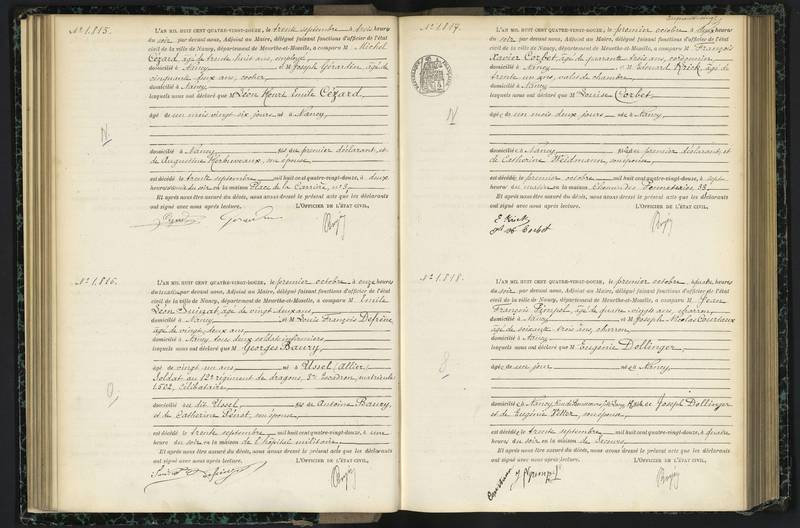 N° 1.815.
L'AN MIL HUIT CENT QUATRE-VINGT-DOUZE, le trente septembre à trois heures
du soir par devant nous, Adjoint au Maire, délégué faisant fonctions d'officier de l'état
civil de la ville de Nancy, département de Meurthe-et-Moselle, a comparu M. Michel
Cézard, âgé de trente huit ans, employé,
domicilié à Nancy et M Joseph Gérardin, âgé de
cinquante deux ans, cocher,
domicilié à Nancy
lesquels nous ont déclaré que M Léon Henri Emile Cézard,
âgé de un mois vingt six jours né à Nancy,
N
domicilié à Nancy, fils du premier déclarant, et
de Augustine, son épouse
est décédé le trente septembre mil huit cent quatre-vingt-douze, à deux
heures du soir en la maison Place de la Carrière, n° 3,
Et après nous être assuré du décès, nous avons dressé le présent acte que les déclarants
ont signé avec nous après lecture. L'OFFICIER DE L'ÉTAT CIVIL,
N° 1.816.
L'AN MIL HUIT CENT QUATRE-VINGT-DOUZE, le premier octobre à onze heures
du matin par devant nous, Adjoint au Maire, délégué faisant fonctions d'officier de l'état
civil de la ville de Nancy, département de Meurthe-et-Moselle, a comparu M. Emile
Léon, âgé de vingt deux ans,
domicilié à Nancy et M Louis François
âgé de vingt deux ans,
domicilié à Nancy, tous deux soldats infirmiers
lesquels nous ont déclaré que M Georges Baury,
âgé de vingt un ans, né à Ussel (Allier)
Soldat au 12e régiment de dragons, 3e Escadron, matricule
1502, célibataire,
domicilié au dit Ussel, fils de Antoine Baury,
et de Catherine, son épouse
est décédé le trente septembre mil huit cent quatre-vingt-douze, à une
heure du soir en la maison de l'hôpital militaire.
Et après nous être assuré du décès, nous avons dressé le présent acte que les déclarants
ont signé avec nous après lecture. L'OFFICIER DE L'ÉTAT CIVIL,
N° 1.817.
L'AN MIL HUIT CENT QUATRE-VINGT-DOUZE, le premier octobre à deux heures
du soir par devant nous, Adjoint au Maire, délégué faisant fonctions d'officier de l'état
civil de la ville de Nancy, département de Meurthe-et-Moselle, a comparu M. François
Xavier Corbet, âgé de quarante trois ans, cordonnier,
domicilié à Nancy et M Edouard Krick, âgé de
trente un ans, valet de chambre,
domicilié à Nancy
lesquels nous ont déclaré que M Louise Corbet,
âgée de un mois deux jours née à Nancy,
N
domiciliée à Nancy, fille du premier déclarant,
et de Catherine Weidmann, son épouse,
est décédée le premier octobre mil huit cent quatre-vingt-douze, à sept
heures du matin en la maison, 33,
Et après nous être assuré du décès, nous avons dressé le présent acte que les déclarants
ont signé avec nous après lecture. L'OFFICIER DE L'ÉTAT CIVIL,
E. Krick
Corbet
N° 1.818.
L'AN MIL HUIT CENT QUATRE-VINGT-DOUZE, le premier octobre, à quatre heures
du soir par devant nous, Adjoint au Maire, délégué faisant fonctions d'officier de l'état
civil de la ville de Nancy, département de Meurthe-et-Moselle, a comparu M. Jean
François, âgé de quatre vingts ans, charron,
domicilié à Nancy et M Joseph Nicolas Courtieux
âgé de soixante trois ans, charron,
domicilié à Nancy
lesquels nous ont déclaré que M Eugénie Dollinger,
âgée de un jour née à Nancy,
8
domiciliée à Nancy, fille de Joseph Dollinger
et de Eugénie Vetter, son épouse,
est décédée le trente septembre mil huit cent quatre-vingt-douze, à quatre
heures du soir en la maison de Secours
Et après nous être assuré du décès, nous avons dressé le présent acte que les déclarants
ont signé avec nous après lecture. L'OFFICIER DE L'ÉTAT CIVIL,